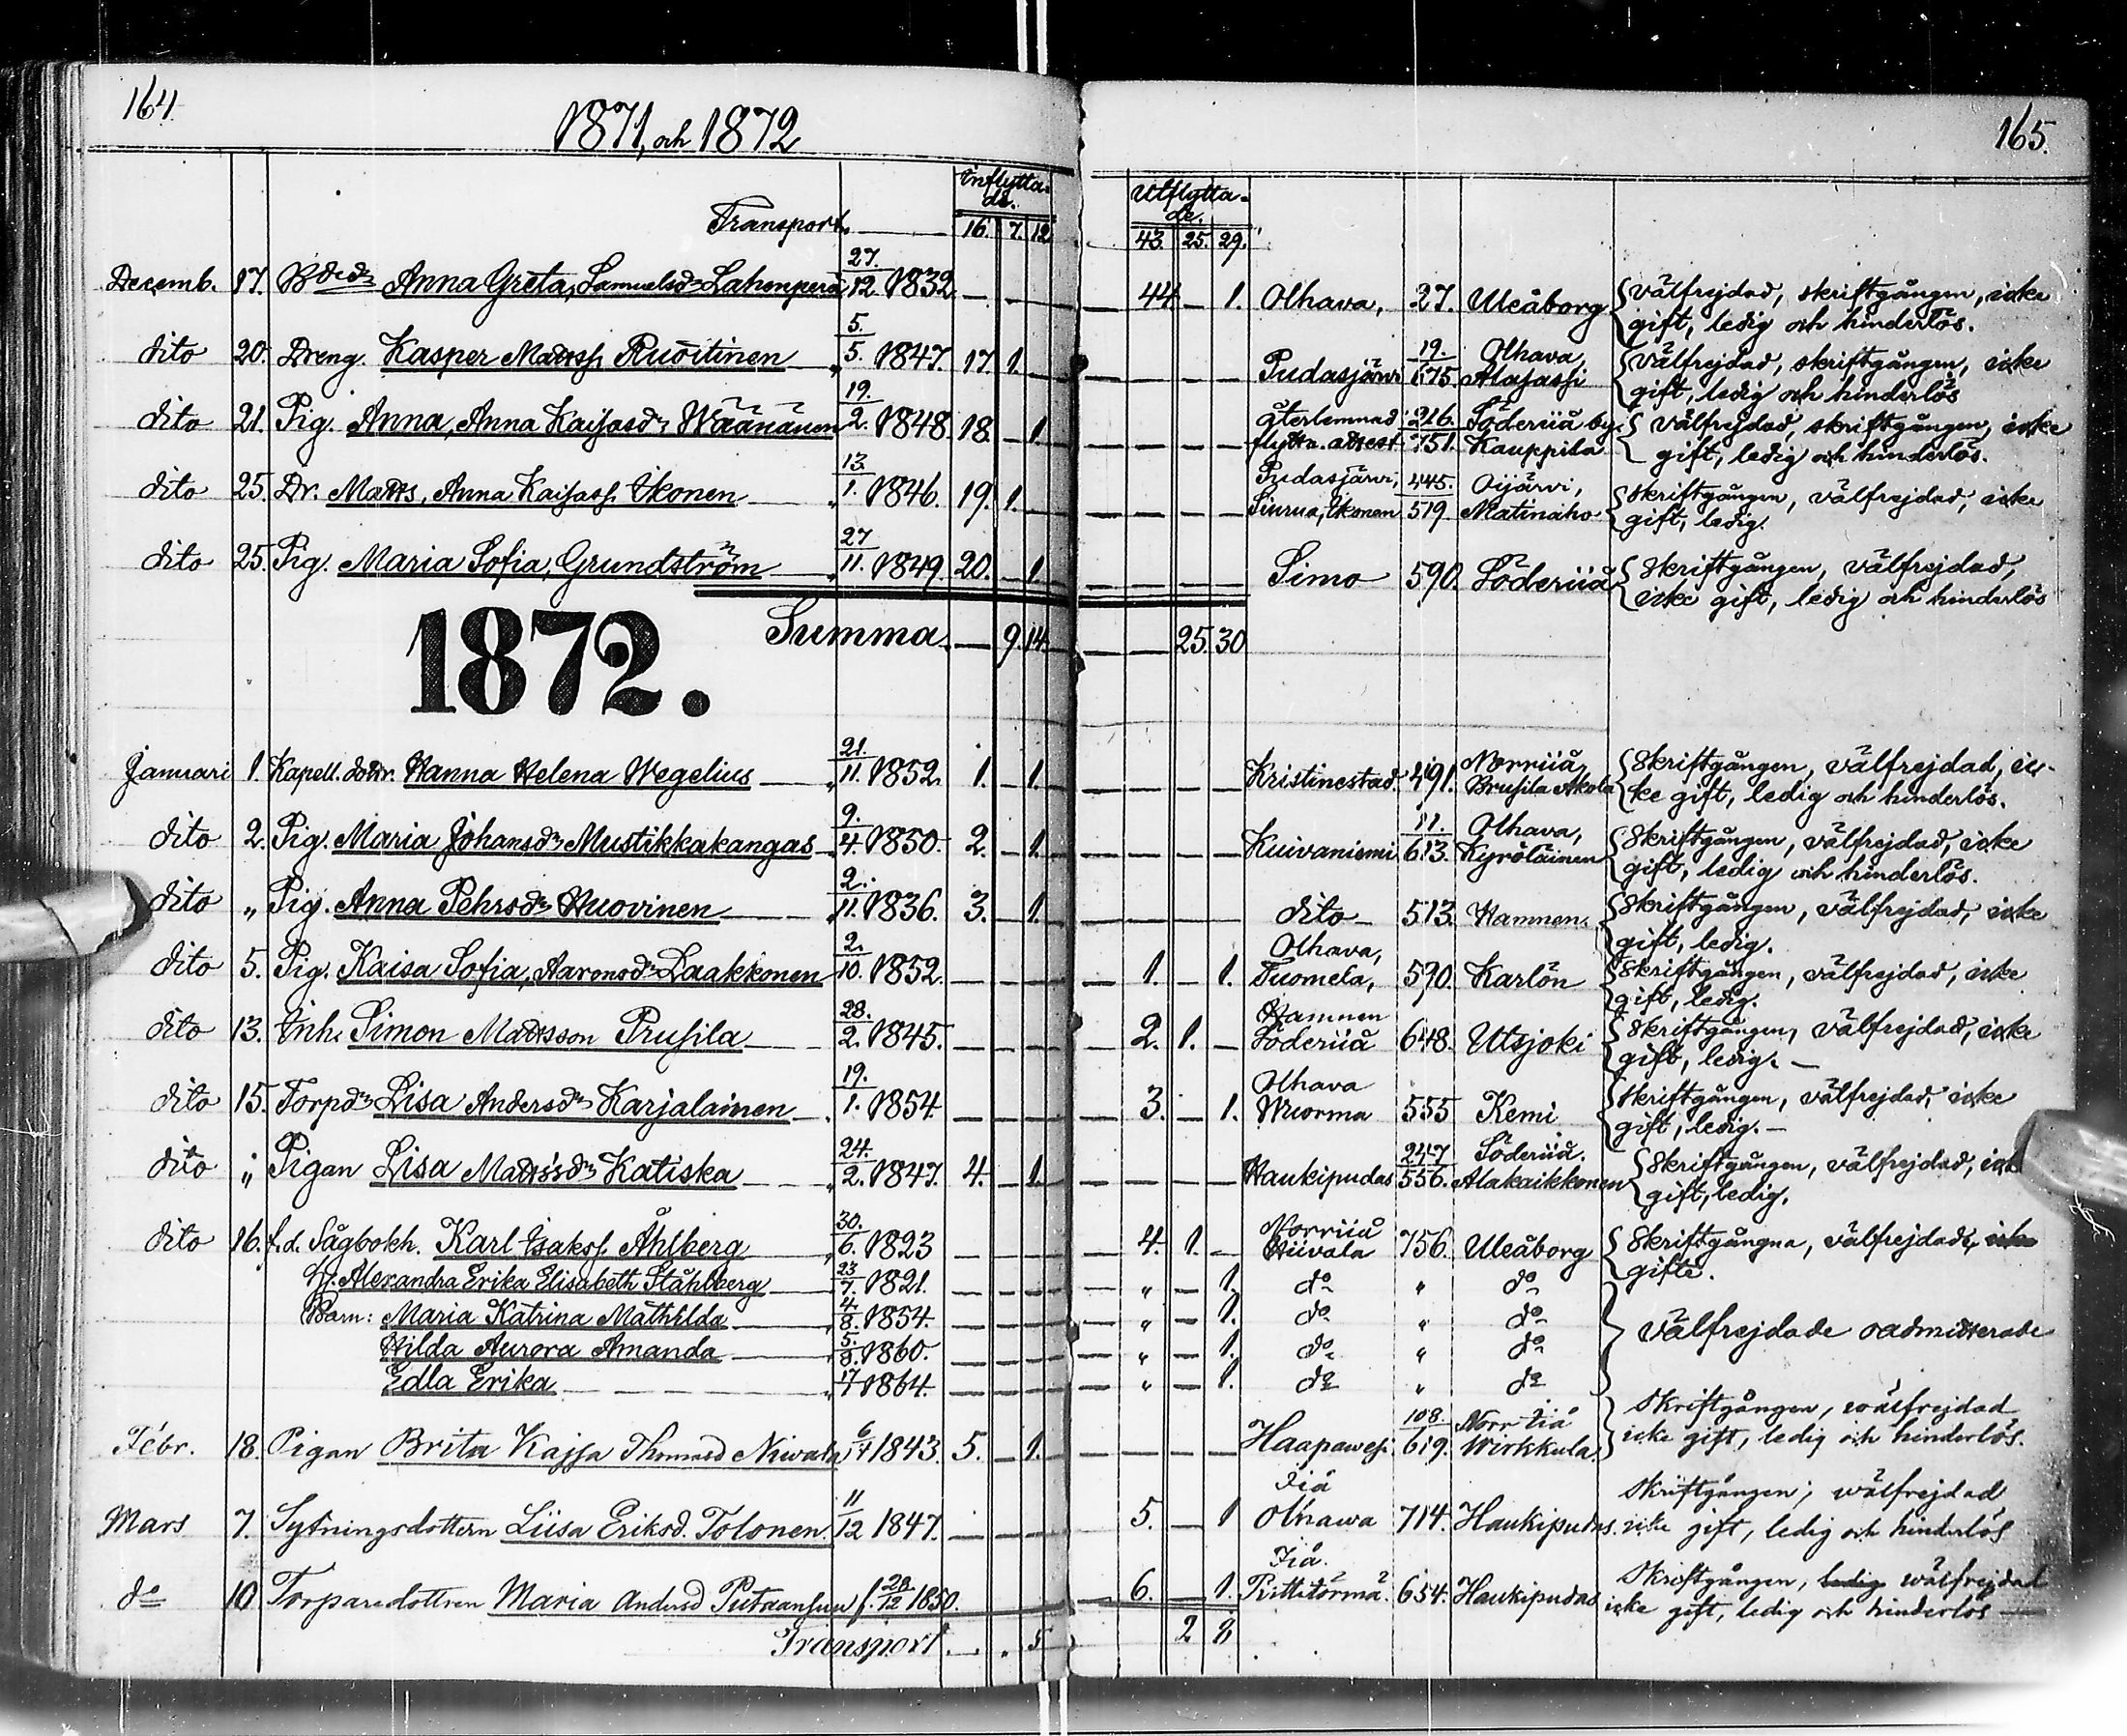 164.
1871, och 1872
165.
Inflytta-
de.
Utflytta-
de.
Transport. 16. 7. 12 43. 25. 29.
Decemb. 17. Anna Greta, Samuelsdr Lahenperä 27./12. 1832 — — — 44 — 1. Olhava, 27. Uleåborg välfrejdad, skriftgången, icke
gift, ledig och hinderlös.
dito 20. Dreng. Kasper Mattss. Ruoitinen 5./5. 1847. 17. 1. — — — — Pudasjärvi 19./175. Olhava, Alasassi välfrejdad, skriftgången, icke
gift, ledig och hinderlös
dito 21. Pig. Anna, Anna Kaisasdr Wäänänen 19./2. 1848. 18. — 1. — — — återlemnad flyttn. attest 216./751. Söderiiå by. Kauppila välfrejdad, skriftgången, icke
gift, ledig och hinderlös.
dito 25. Dr. Matts, Anna Kaisass. Ikonen 13./1. 1846. 19. 1. — — — — Pudasjärvi, Siurua, Ikonen 445./519. Oijärvi, Matinaho skriftgången, välfrejdad, icke
gift, ledig.
dito 25. Pig. Maria Sofia, Grundström 27/11. 1849. 20. — 1 — — — Simo 590. Söderiiå skriftgången, välfrejdad,
icke gift, ledig och hinderlös
Summa. — 9. 14. — 25. 30
1872.
Januari 1. Kapell. dottr. Hanna Helena Wegelius 21./11. 1852. 1. — 1. — — — Kristinestad 491. Norriiå, Brusila Akola skriftgången, välfrejdad, ic-
ke gift, ledig och hinderlös.
dito 2. Pig. Maria Johansdr Mustikkakangas 9./4. 1850. 2. — 1. — — — Kuivaniemi 11./613. Olhava, Kyröläinen skriftgången, välfrejdad, icke
gift, ledig och hinderlös.
dito „ Pig. Anna Pehrsdr Huovinen 2./11. 1836. 3. — 1. — — — dito 513. Hamnen. skriftgången, välfrejdad, icke
gift, ledig.
dito 5. Pig. Kaisa Sofia, Aaronsdr Laakkonen 2./10. 1852. — — — 1. — 1. Olhava, Tuomela, 590. Karlön skriftgången, välfrejdad, icke
gift, ledig.
dito 13. Inh. Simon Mattsson Prusila 28./2. 1845. — — — 2. 1. — Hamnen Söderiiå 648. Utsjoki skriftgången, välfrejdad, icke
gift, ledig. —
dito 15. Torpdr Lisa Andersdr Karjalainen 19./1. 1854 — — — 3. — 1. Olhava Wuorma 555 Kemi skriftgången, välfrejdad, icke
gift, ledig. —
dito „ Pigan Lisa Mattsdr Katiska 24./2. 1847. 4. — 1. — — — Haukipudas 247/556. Söderiiå. Alakaikkonen skriftgången, välfrejdad,
gift, ledig.
dito 16. f.d. Sågbokh. Karl Isakss. Åhlberg 30./6. 1823 — — — 4. 1. — Norriiå Hiivala 756. Uleåborg skriftgångna, välfrejdade, icke
gifte.
H. Alexandra Erika Elisabeth Ståhlberg 23/7. 1821. — — — „ — 1. do „ do
Barn: Maria Katrina Mathilda 4./8. 1854 — — — „ — 1. do „ do välfrejdade oadmitterade
Hilda Aurora Amanda 5./8. 1860. — — — „ — 1. do „ do
Edla Erika 17/7 1864. — — — „ — 1. do „ do
Febr. 18. Pigan Brita Kajsa Thomasd Niwala 1843. 5. — 1. — — — Haapawesi 108./619. Norr Iiå Wirkkula. Skriftgången, wälfrejdad
icke gift, ledig och hinderlös.
Mars 7. Sytningsdottern Liisa Eriksd. Tolonen. 11/12 1847. — — — 5. — 1 Iiå Olhawa 714. Haukipudas. Skriftgången, wälfrejdad
icke gift, ledig och hinderlös
do 10 Torparedottren Maria Andersd Putaansuu f. 28/12 1850. 6. — 1. Iiå. Riittitörmä. 654. Haukipudas Skriftgången, ledig wälfrejdad
icke gift, ledig och hinderlös —
Transport. — „ 5 2 8